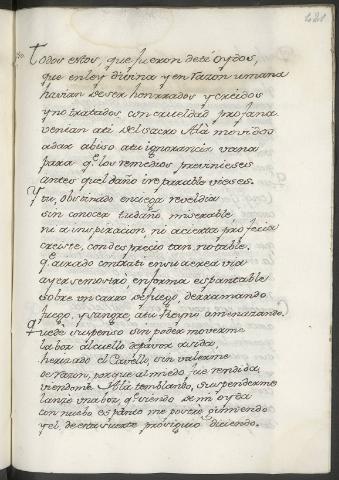 Todos estos, que fueron de tí oydos,
que en ley divina y en razon umana
havian de ser honrrados y creidos
y no tratados con crueldad profana
venian a ti del sacro Alá movidos
a dar abiso a tu ignorancia vana
para q̃ los remedios previnieses
antes quel daño ireparable vieses.
Y tu, obstinado en ciega reveldia
sin conocer tu daño miserable
ni a inspiracion, ni a cierta profecia
creiste, con desprecio tan notable.
q̃ airado contra ti en su aerea via
ayer se mostró en forma espantable
sobre un carro de fuego, derramando
fuego, y sangre, a tu Reyno aminazando.
Quede suspenso sin poder moverme
la boz al cuello de pavor asida,
herizado el Cavello, sin valerme
de razon, porque al miedo fue rendida,
viendome Alá temblando, suspenderme
lanzó una boz, q̃ siendo de mi oyda
con nuebo espanto me postró gimiendo
y el, de esta suerte prosiguió diciendo.